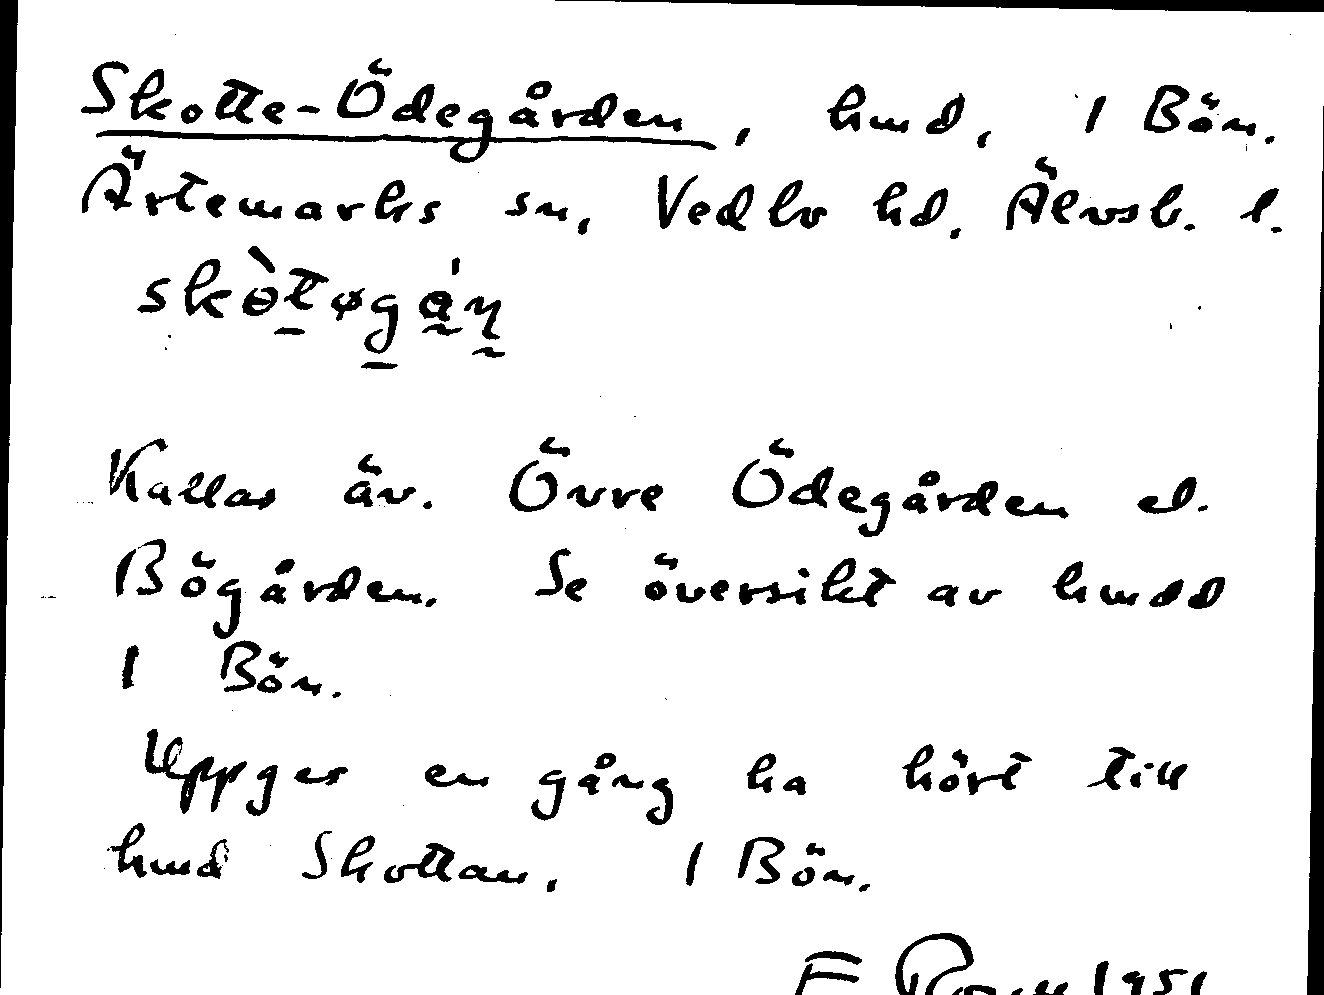 Skotte-Ödegården, hmd, 1 Bön.
Ärtemarks sn, Vedbo hd. Älvsb. l.
skòtøgá̰n̰
Kallas äv. Övre Ödegården el.
Bögården. Se översikt av hmdd
1 Bön.
Uppges en gång ha hört till
hmd Skottan, 1 Bön.
F 1951